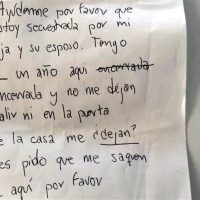 Ayudenme por favor que
estoy secuestrada por mi
ja y su esposo. Tengo
un año aquí encerrada
encerrada y no me dejan
salir ni en la porta
e la casa me ¿dejan?
es pido que me saquen
aquí por favor